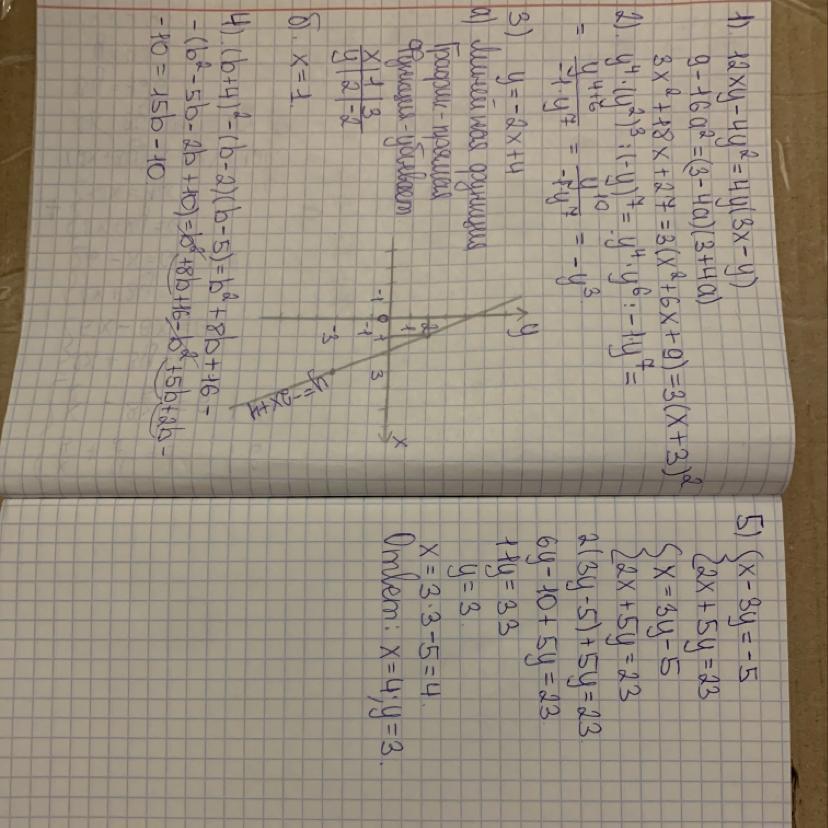 1) 12xy-4y²=4y(3x-y)
9-16a²=(3-4a)(3+4a)
3x²+18x+27=3(x²+6x+9)=3(x+3)²
2). y⁴·(y²)³:(-y)⁷=y⁴·y⁶:-1·y⁷=
= y⁴⁺⁶/-1·y⁷ = y¹⁰/-y⁷ = -y³
3) y=-2x+4
а) Линейная функция
График-прямая
Функция-убывает
x|1|3
y|2|-2
б. x=1.
y
x
2
1
-1
0
1
3
-1
-3
y=-2x+4
4).(b+4)²-(b-2)(b-5)=b²+8b+16-
-(b²-5b-2b+10)=b²+8b+16-b²+5b+2b-
-10=15b-10
5) {x-3y=-5
{2x+5y=23
{x=3y-5
{2x+5y=23
2(3y-5)+5y=23.
6y-10+5y=23.
11y=33
y=3.
x=3·3-5=4.
Ответ: x=4; y=3.